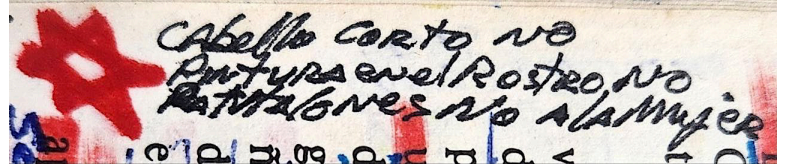 CAbello CORTO NO
PINTURA EN el ROSTRO, NO
PANTALONES NO A LA MUJER